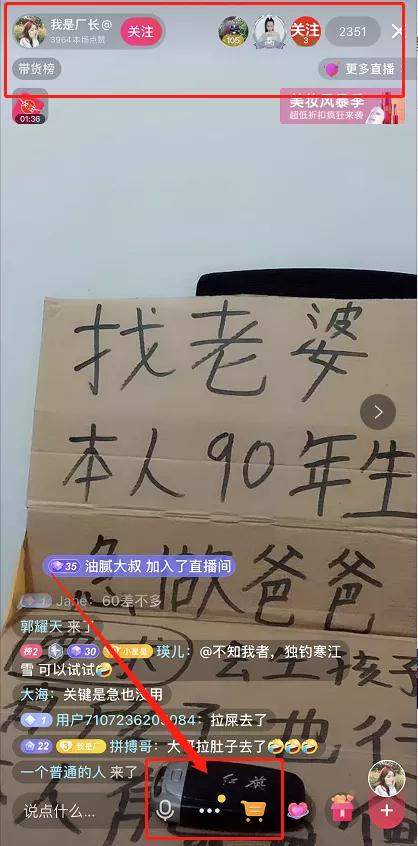 我是厂长@
3964本场点赞
关注
105
关注
3
2351
带货榜
更多直播
01:36
美妆风暴季
超低折扣疯狂来袭
找老婆
本人90年生
急做爸爸
35 油腻大叔 加入了直播间
1 Jane：60差不多
郭耀天 来了
榜2 30 小星星 瑛儿：@不知我者，独钓寒江
雪 可以试试🤣
大海：关键是急也没用
1 用户7107236203084：拉屎去了
22 3 我是厂 拼搏哥：大哥拉肚子去了🤣🤣🤣
一个普通的人 来了
红旗
说点什么...